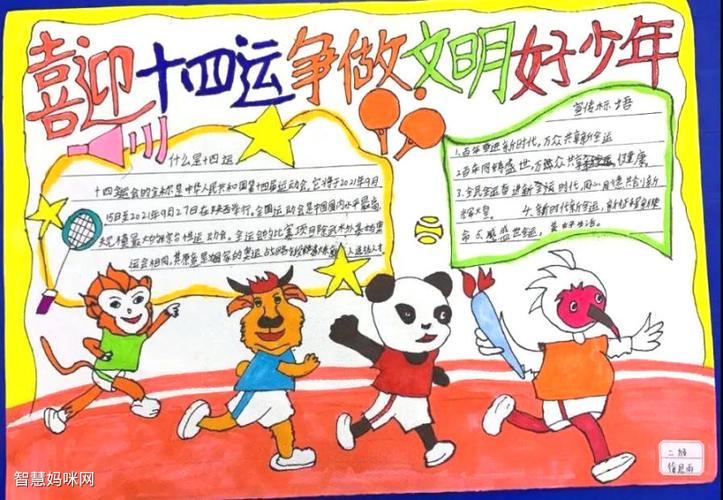 喜迎十四运争做文明好少年
什么是十四运
十四运会的全称是中华人民共和国第十四届运动会,它将于2021年9月
15日至2021年9月27日在陕西举行。全国运动会是中国国内水平最高
规模最大的综合性运动会。全运会的比赛项目除武术外基本与奥
运会相同,其原意是为国家的奥运战略
宣传标语
1.百年奋进新时代,万众共享新全运
2.百年同铸盛世,万民众共享全运健康
3.全民全运奋进新全运时代,同心同德共创新
4.新时代新全运,新
命 5.
美好生活。
二班
智慧妈咪网